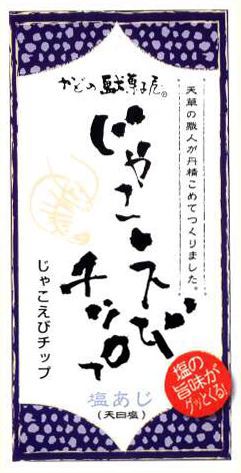 かどの駄菓子屋®
天草の職人が丹精こめてつくりました。
じゃこえび
チップ
じゃこえびチップ
塩あじ
(天日塩)
塩の
旨味が
グッとくる!